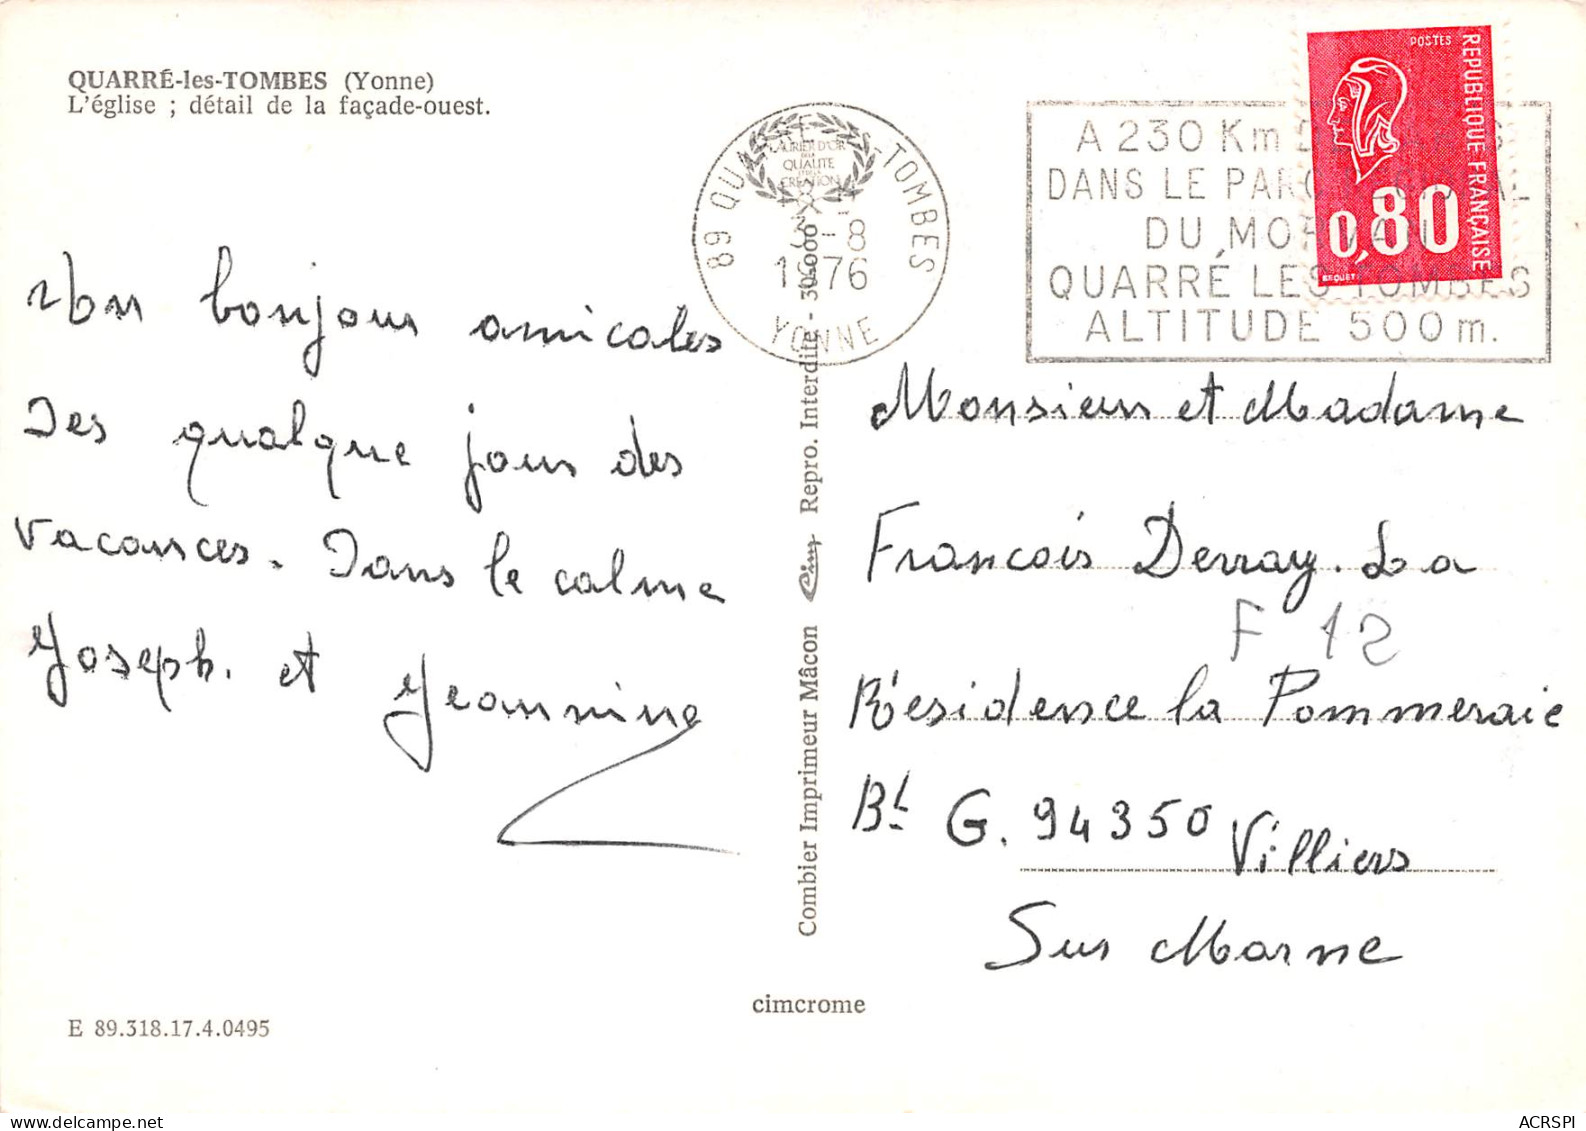 QUARRÉ-les-TOMBES (Yonne)
L'église ; détail de la façade-ouest.
Un bonjour amicales
Des qualque jours des
vacances. Dans le calme
Joseph. et Jeannine
E 89.318.17.4.0495
Combier Imprimeur Mâcon Cim Repro. Interdite - 304000
cimcrome
LAURIER D'OR
QUALITÉ
CRÉATION
89 QUARRÉ-LES-TOMBES
3-8
1976
YONNE
A 230 Km
DANS LE PARC
DU MORVAN
QUARRÉ LES TOMBES
ALTITUDE 500 m.
POSTES
REPUBLIQUE FRANÇAISE
0,80
BEQUET
Monsieur et Madame
Francois Derray. La
F 12
Résidence la Pommeraie
Bt G. 94350 Villiers
Sur Marne
ACRSPI